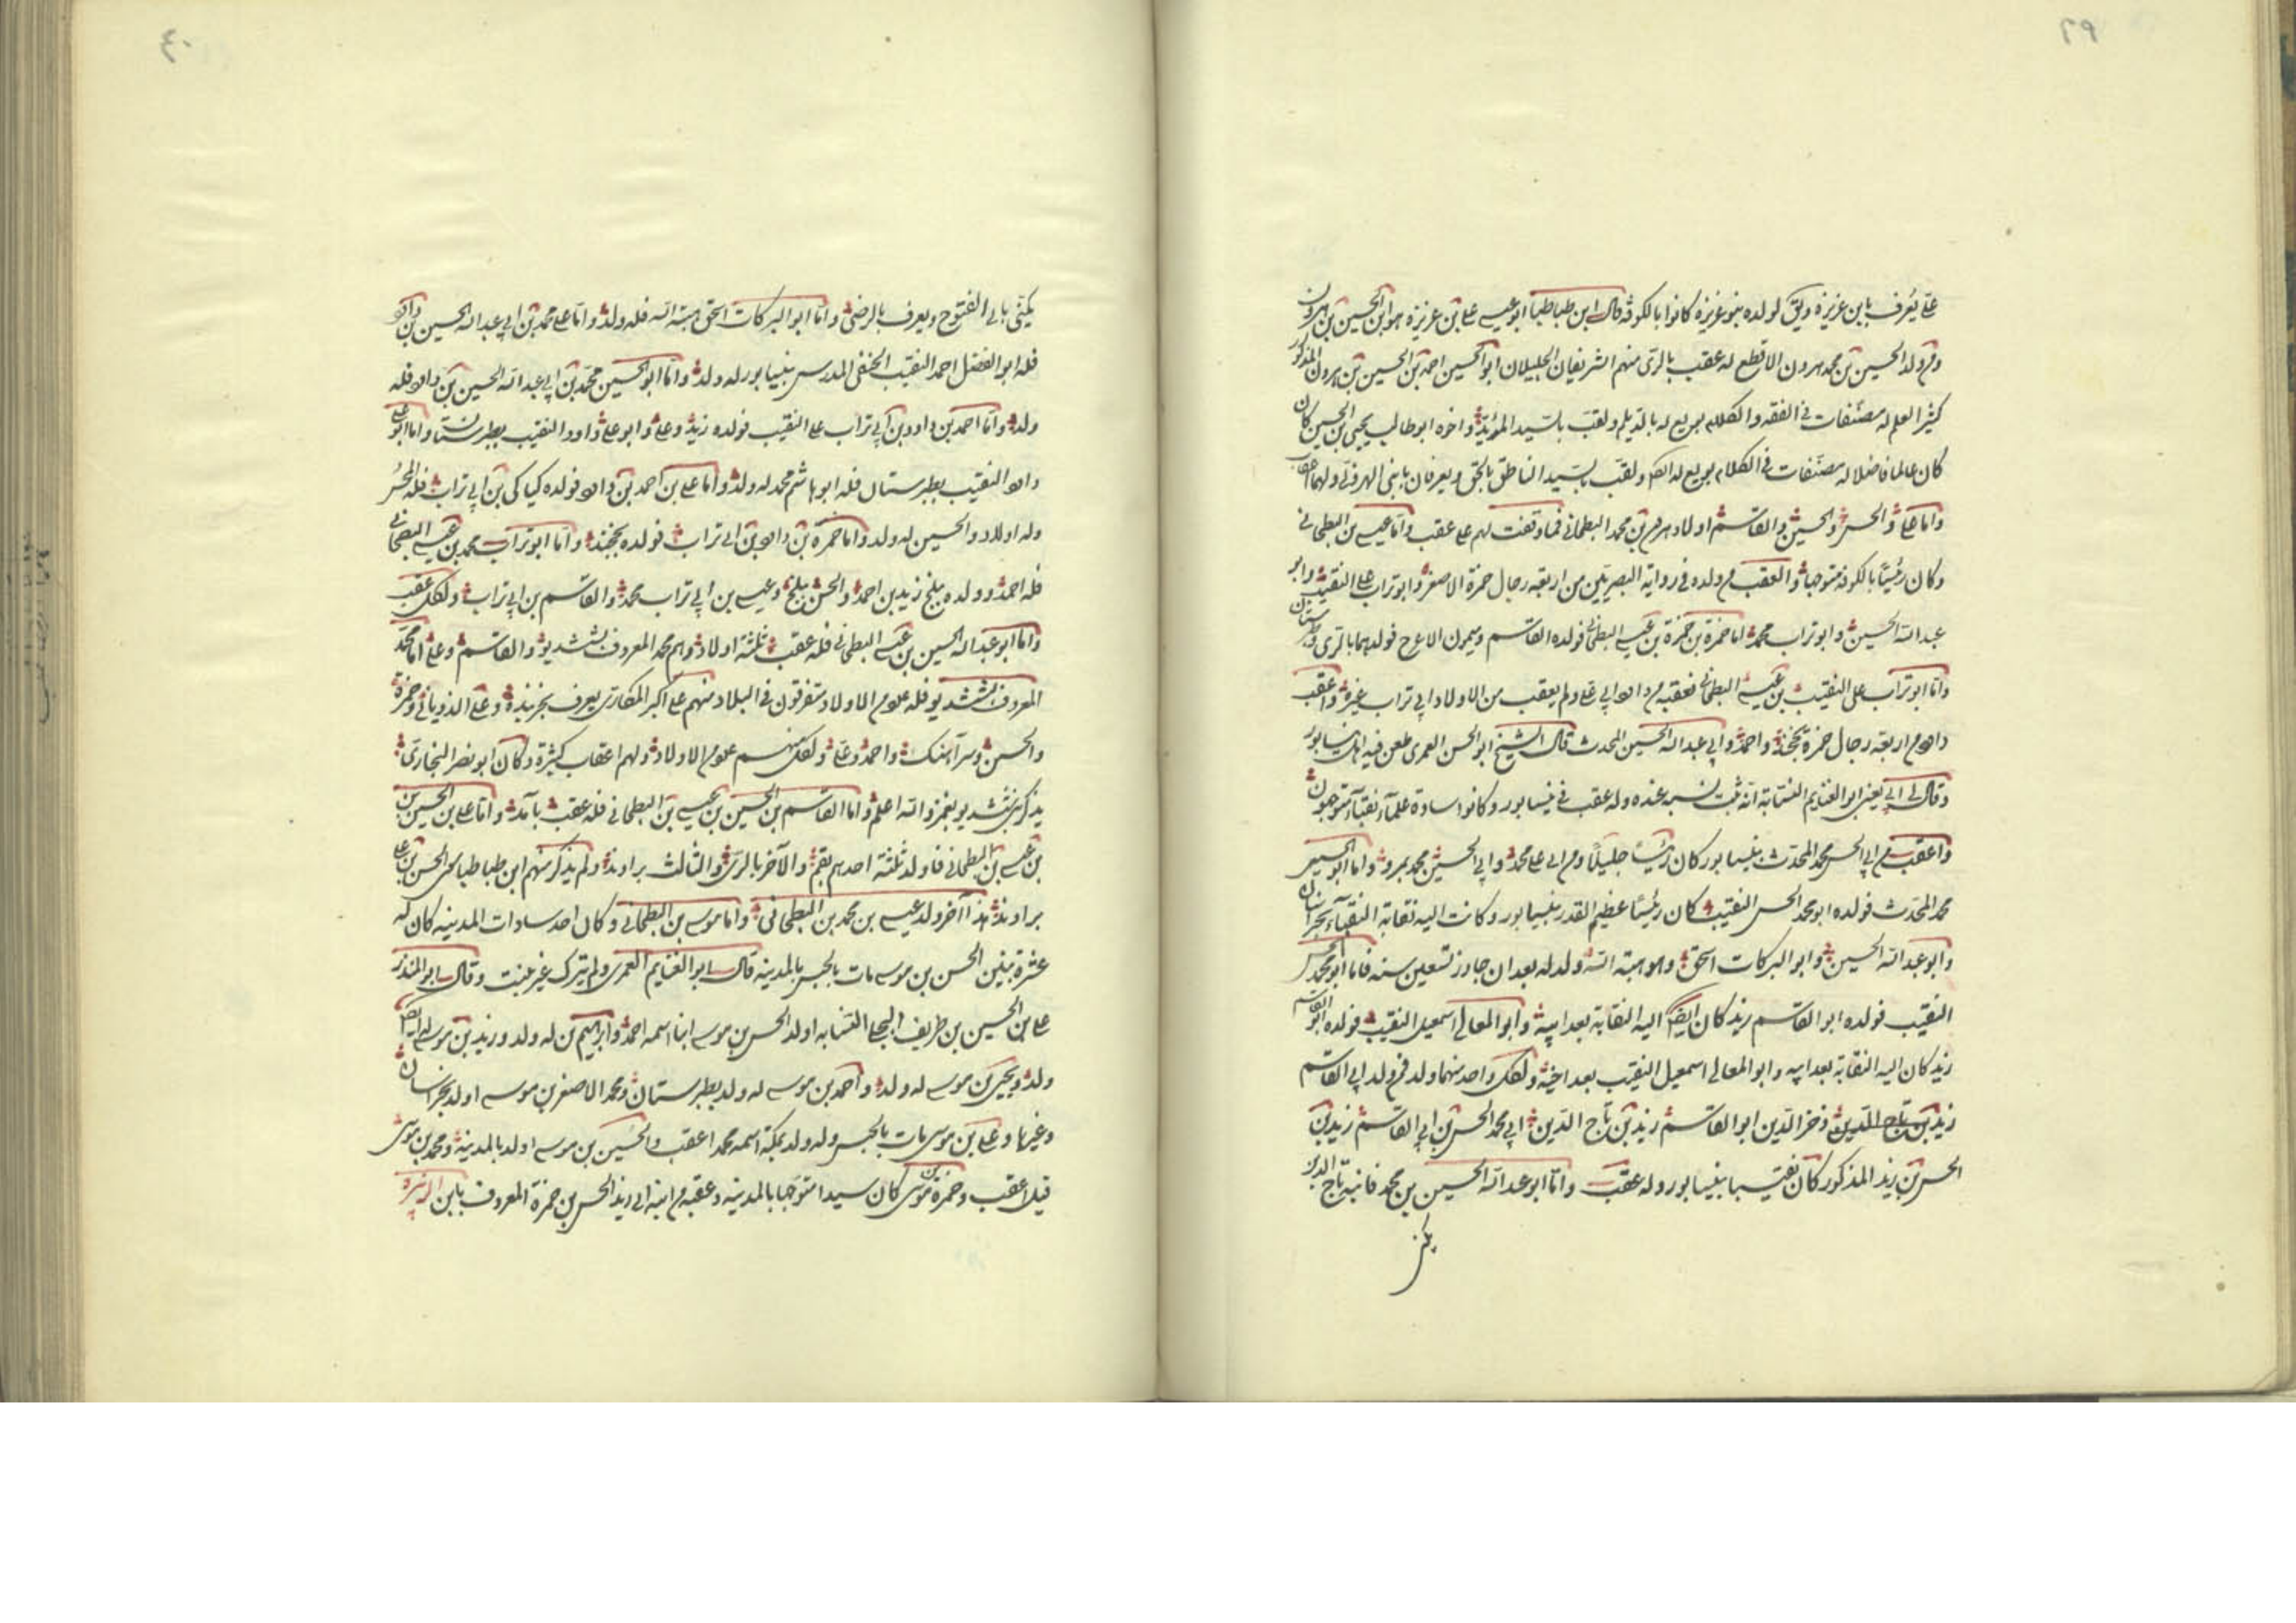 ٣٩
علي يُعرف بابن عزيزة ويق لولده بنو عزيزة كانوا بالكوفة قال ابن طباطبا ابو عيسى علي بن عزيزة هو ابن الحسين بن هرون
ومن ولد الحسين بن محمد هرون الاقطع له عقب بالري منهم الشريفان الجليلان ابو الحسين احمد بن الحسين بن هرون المذكور
كثير العلم له مصنفات في الفقه والكلام بويع له بالديلم ولقب بالسيد المؤيد واخوه ابو طالب يحيى بن الحسين كان
كان عالما فاضلا له مصنفات في الكلام بويع له ايضا ولقب بالسيد الناطق بالحق ويعرفان بابني الهروني ولهما اعقاب
واما علي والحسن والحسين والقاسم اولاد هرون بن محمد البطحاني فما وقفت لهم على عقب واما عيسى بن البطحاني
وكان رئيسًا بالكوفة متوجها والعقب من ولده في رواية البصريين من اربعة رجال حمزة الاصغر وابو تراب علي النقيب وابو
عبد الله الحسين وابو تراب محمد اما حمزة بن حمزة بن عيسى البطحاني فولده القاسم وميمون الاعرج فولدهما بالري وطبرستان
واما ابو تراب علي النقيب بن عيسى البطحاني فعقبه من داود ابي علي ولم يعقب من الاولاد ابي تراب غيره واعقب
داود من اربعة رجال حمزة بخجند واحمد وابي عبد الله الحسين المحدث قال الشيخ ابو الحسن العمري طعن فيه اهل نيسابور
وقال لي ابي يعني ابو الغنايم النسابة انه ثبت نسبه عنده وله عقب في نيسابور وكانوا سادة علماء نقباء متوجهون
واعقب من ابي الحسن محمد المحدث بنيسابور كان رئيسًا جليلًا ومن ابي علي محمد وابي الحسين محمد بمرو واما ابو الحسين
محمد المحدث فولده ابو محمد الحسن النقيب كان رئيسًا عظيم القدر بنيسابور وكانت اليه نقابة النقباء بخراسان
وابو عبد الله الحسين وابو البركات اسحق وهو هبة الله ولد له بعد ان جاوز تسعين سنة فاما ابو محمد الحسن
النقيب فولده ابو القاسم زيد كان ايضا اليه النقابة بعد ابيه وابو المعالي اسمعيل النقيب فولده ابو القاسم
زيد كان اليه النقابة بعد ابيه وابو المعالي اسمعيل النقيب بعد اخيه ولكل واحد منهما ولد فمن ولد ابي القاسم
زيد بن تاج الدين وفخر الدين ابو القاسم زيد بن تاج الدين ابي محمد الحسن بن ابي القاسم زيد بن
الحسن بن زيد المذكور كان نقيبا بنيسابور وله عقب واما ابو عبد الله الحسين بن محمد فابنه تاج الدين
يكنى
٤٠
يكنى بابي الفتوح ويعرف بالرضي واما ابو البركات اسحق هبة الله فله ولد واما علي محمد بن ابي عبد الله الحسين بن داود
فله ابو الفضل احمد النقيب الحنفي المدرس بنيسابور له ولد واما ابو الحسين محمد بن ابي عبد الله الحسين بن داود فله
ولد واما احمد بن داود بن ابي تراب علي النقيب فولده زيد وعلي وابو علي داود النقيب بطبرستان واما ابو علي
داود النقيب بطبرستان فله ابو هاشم محمد له ولد واما علي بن احمد بن داود فولده كياكي بن ابي تراب فله الحسن
وله اولاد والحسين له ولد واما حمزة بن داود بن ابي تراب فولده بخجند واما ابو تراب محمد بن عيسى البطحاني
فله احمد وولده ببلخ زيد بن احمد والحسن ببلخ وعيسى بن ابي تراب محمد والقاسم بن ابي تراب ولكل عقب
واما ابو عبد الله الحسين بن عيسى البطحاني فله عقب ثلثة اولاد وهم محمد المعروف بششديو والقاسم وعلي اما محمد
المعروف بششديو فله علوم الاولاد متفرقون في البلاد منهم علي اكبر المكاري يعرف بخربنده وعلي وحمزة
والحسن وسراهنك واحمد وعلي ولكل منهم علوم الاولاد ولهم اعقاب كثيرة وكان ابو نصر البخاري
يذكر بششديو بغمز والله اعلم واما القاسم بن الحسين بن عيسى بن البطحاني فله عقب بآمد واما علي بن الحسين بن
بن عيسى بن البطحاني فاولد ثلثة احدهم بقم والآخر بالري والثالث براوند ولم يذكر منهم ابن طباطبا سوى الحسن بن علي
براوند هذا آخر ولد عيسى بن محمد بن البطحاني واما موسى بن البطحاني وكان احد سادات المدينة كان له
عشرة بنين الحسن بن موسى مات بالحبس بالمدينة قال ابو الغنايم العمري ولم يترك غير بنت وقال ابو المنذر
علي بن الحسين بن طريف البجلي النسابة اولد الحسن بن موسى ابنا اسمه احمد وابرهيم من له ولد وزيد بن موسى له ايضا
ولد ويحيى بن موسى له ولد واحمد بن موسى له ولد بطبرستان ومحمد الاصغر بن موسى اولد بخراسان
وغيرها وعلي بن موسى مات بالحبس وله ولد بمكة اسمه محمد اعقب والحسين بن موسى اولد بالمدينة ومحمد بن موسى
قيل اعقب وحمزة بن موسى كان سيدا متوجها بالمدينة وعقبه من ابنه ابي زيد الحسن بن حمزة المعروف بابن الزبيرية